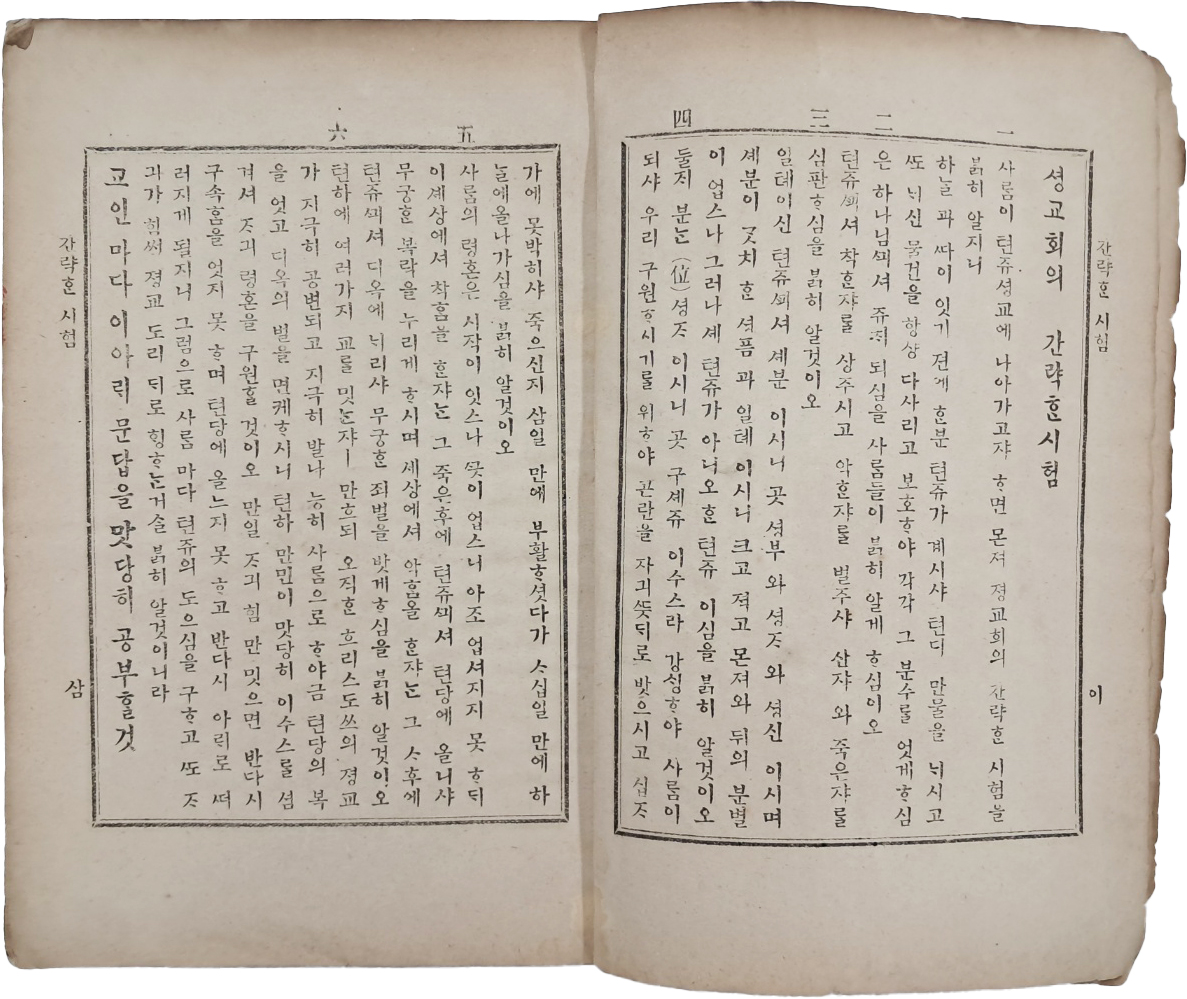 간략ᄒᆞᆫ 시험
이
一
二
三
四
셩교회의 간략ᄒᆞᆫ시험
사ᄅᆞᆷ이 텬쥬셩교에 나아가고쟈 ᄒᆞ면 몬져 졍교회의 간략ᄒᆞᆫ 시험을
붉히 알지니
하ᄂᆞᆯ 과 ᄯᅡ이 잇기 젼에 ᄒᆞᆫ분 텬쥬가 계시샤 텬디 만물을 ᄂᆡ시고
ᄯᅩ ᄂᆡ신 물건을 항샹 다사리고 보호ᄒᆞ야 각각 그 분수ᄅᆞᆯ 엇게ᄒᆞ심
은 하나님ᄭᅴ셔 쥬ᄌᆡ 되심을 사ᄅᆞᆷ들이 붉히 알게 ᄒᆞ심이오
텬쥬ᄭᅴ셔 착ᄒᆞᆫ쟈ᄅᆞᆯ 상주시고 악ᄒᆞᆫ쟈ᄅᆞᆯ 벌주샤 산쟈 와 죽은쟈ᄅᆞᆯ
심판ᄒᆞ심을 붉히 알것이오
일톄이신 텬쥬ᄭᅴ셔 셰분 이시니 곳 셩부 와 셩ᄌᆞ 와 셩신 이시며
셰분이 ᄀᆞᆺ치 ᄒᆞᆫ 셩픔 과 일톄 이시니 크고 젹고 몬져와 뒤의 분별
이 업스나 그러나 셰 텬쥬가 아니오 ᄒᆞᆫ 텬쥬 이심을 붉히 알것이오
둘ᄌᆡ 분ᄂᆞᆫ (位) 셩ᄌᆞ 이시니 곳 구셰쥬 이수스라 강ᄉᆡᆼᄒᆞ야 사ᄅᆞᆷ이
되샤 우리 구원ᄒᆞ시기를 위ᄒᆞ야 곤란을 자긔ᄯᅳᆺᄃᆡ로 밧으시고 십ᄌᆞ
五
六
가에 못박히샤 죽으신지 삼일 만에 부활ᄒᆞ셧다가 ᄉᆞ십일 만에 하
ᄂᆞᆯ에올나가심을 붉히 알것이오
사ᄅᆞᆷ의 령혼은 시작이 잇스나 ᄭᅳᆺ이 업스니 아조 업셔지지 못 ᄒᆞᄃᆡ
이셰상에셔 착홈을 ᄒᆞᆫ쟈ᄂᆞᆫ 그 죽은후에 텬쥬ᄭᅴ셔 텬당에 올니샤
무궁ᄒᆞᆫ 복락을 누리게 ᄒᆞ시며 세상에셔 악홈을 ᄒᆞᆫ쟈ᄂᆞᆫ 그 ᄉᆞ후에
텬쥬ᄭᅴ셔 디옥에 ᄂᆞ리샤 무궁ᄒᆞᆫ 죄벌을 밧게ᄒᆞ심을 붉히 알것이오
텬하에 여러가지 교를 밋ᄂᆞᆫ쟈ㅣ 만흐되 오직ᄒᆞᆫ 흐리스도쓰의 졍교
가 지극히 공변되고 지극히 발나 능히 사ᄅᆞᆷ으로 ᄒᆞ야금 텬당의 복
을 엇고 디옥의 벌들 면케ᄒᆞ시니 텬하 만민이 맛당히 이수스를 셤
겨셔 ᄌᆞ긔 령혼을 구원ᄒᆞᆯ 것이오 만일 ᄌᆞ긔 힘 만 밋으면 반다시
구속홈을 엇지 못 ᄒᆞ며 텬당에 올느지 못 ᄒᆞ고 반다시 아ᄅᆡ로 ᄯᅥ
러지게 될지니 그럼으로 사ᄅᆞᆷ 마다 텬쥬의 도으심을 구ᄒᆞ고 ᄯᅩ ᄌᆞ
긔가 힘써 졍교 도리 ᄃᆡ로 ᄒᆡᆼᄒᆞᄂᆞᆫ거슬 붉히 알것이니라
교인 마다 이아ᄅᆡ 문답을 맛당히 공부ᄒᆞᆯ것
간략ᄒᆞᆫ 시험
삼